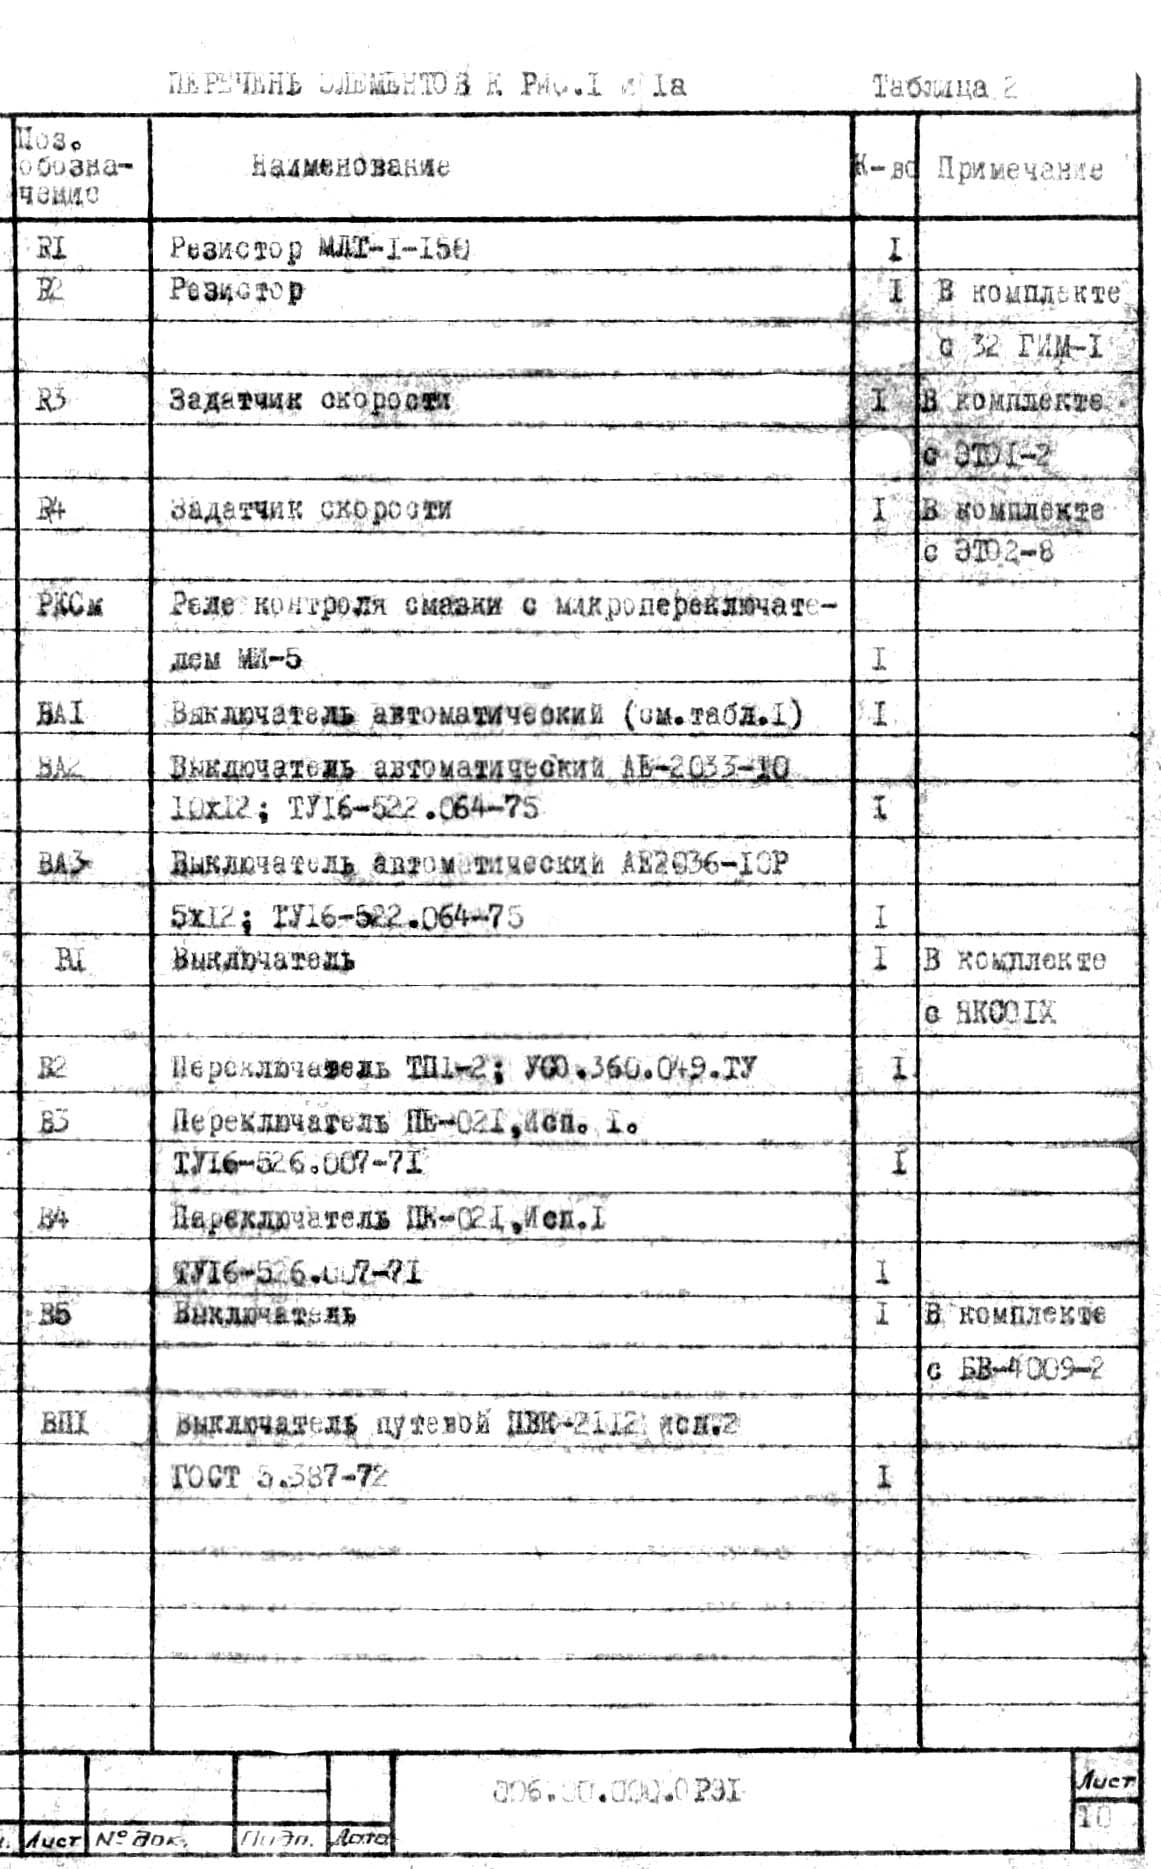 ПЕРЕЧЕНЬ ЭЛЕМЕНТОВ К Рис.I и Iа Таблица 2
Поз. обозна-чение Наименование К-во Примечание
R1 Резистор МЛТ-I-I50 I
R2 Резистор I В комплекте
с 32 ГИМ-I
R3 Задатчик скорости I В комплекте
с ЭТО1-2
R4 Задатчик скорости I В комплекте
с ЭТО2-8
РКСм Реле контроля смазки с микропереключате-
лем МИ-5 I
ВА1 Выключатель автоматический (см.табл.I) I
ВА2 Выключатель автоматический АЕ-2033-10
10х12; ТУ16-522.064-75 I
ВА3 Выключатель автоматический АЕ2036-10Р
5х12; ТУ16-522.064-75 I
В1 Выключатель I В комплекте
с
В2 Переключатель ТП1-2; УСО.360.049.ТУ I
В3 Переключатель ПЕ-021,Исп. I.
ТУ16-526.007-71 I
В4 Переключатель ПЕ-021,Исп.I
ТУ16-526.007-71 I
В5 Выключатель I В комплекте
с БВ-4009-2
ВП1 Выключатель путевой ВПК-2112 исп.2
ГОСТ 5.387-72 I
Лист
10
Лист № док. Подп. Дата